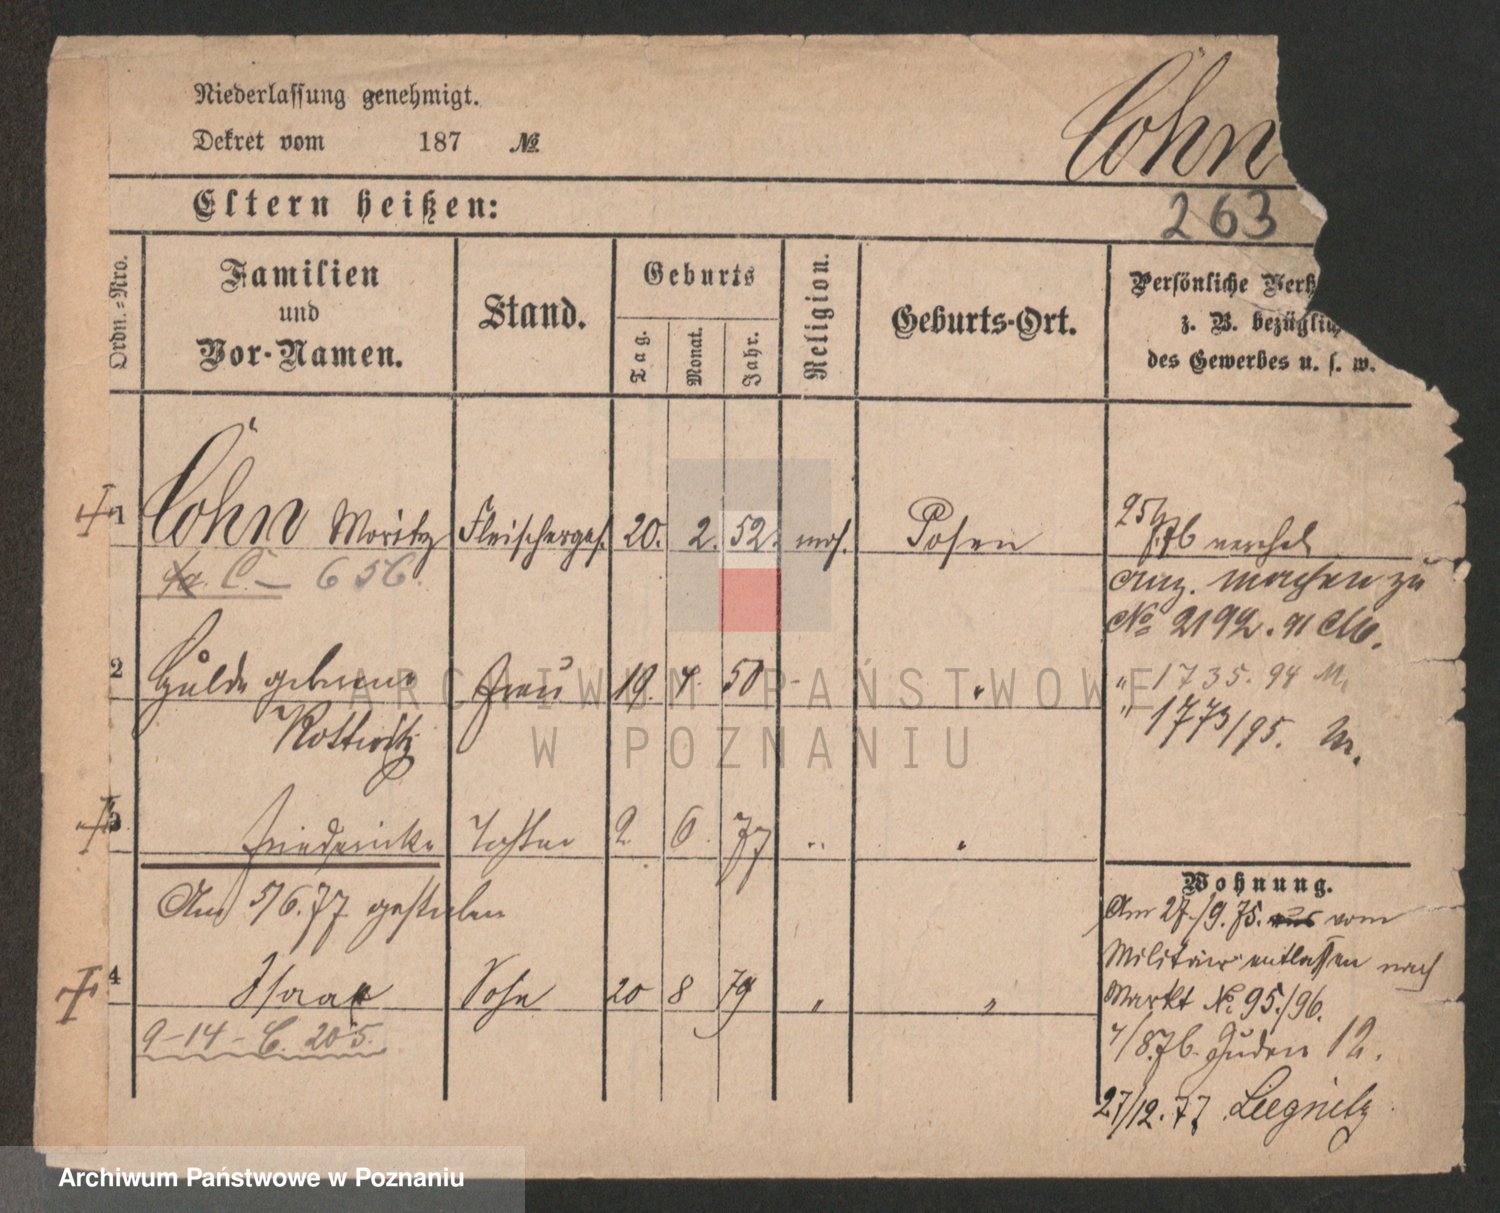 Niederlassung genehmigt.
Cohn
Dekret vom 187 №
Eltern heißen:
263
Ordn.-Nro.
Familien
und
Vor-Namen.
Stand.
Geburts
Tag.
Monat.
Jahr.
Religion.
Geburts-Ort.
Persönliche Verh
z. B. bezüglich
des Gewerbes u. s. w.
1 Cohn Moritz Fleischerges. 20. 2. 52. mos. Posen
C. – 656.
25/7.76 verehel.
Anz. machen zu
No 2192. 91 M.
2 Hulda geborene Frau 19. 4. 50 - "
Kottwitz
" 1735. 94 M.
" 1773/95. M.
3 Friedericke Tochter 2. 6. 77 " "
Am 5/6.77 gestorben
4 Isaac Sohn 20 8 79 " "
9-14- C. 205.
Wohnung.
Am 27./9.75. aus vom
Militair entlassen nach
Markt No. 95./96.
4/8.76. Juden 12.
27/12.77 Liegnitz
ARCHIWUM PAŃSTWOWE
W POZNANIU
Archiwum Państwowe w Poznaniu